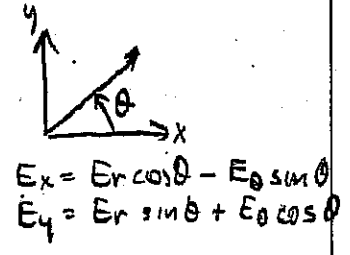 y
θ
x
Ex = Er cosθ - Eθ sinθ
Ey = Er sinθ + Eθ cosθ